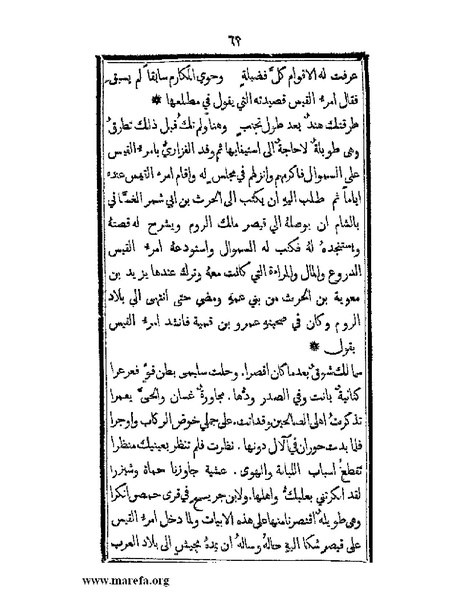 ٦٢
عرفت له الاقوام كلَّ فضيلةٍ وحوى المكارم سابقاً لم يسبق
فقال امرءُ القيس قصيدته التي يقول في مطلعها *
طرقتك هند بعد طول تجنبٍ وهناً ولم تكُ قبل ذلك تطرقُ
وهى طويلة لاحاجة الى استيفايها ثم وفد الفزاريُّ بامرءِ القيس
على السموال فاكرمهم وانزلهم في مجلسٍ له واقام امرءُ القيس عنده
اياماً ثم طلب اليهِ ان يكتب الى الحرث بن ابي شمر الغساني
بالشام ان يوصلهُ الى قيصر مالك الروم ويشرح له قصتهُ
واستنجده لهُ فكتب له السموال واستودعهُ امرءُ القيس
الدروع والمال والمراءة التي كانت معهُ وترك عندها يزيد بن
معوية بن الحرث من بني عمهِ ومضى حتى انتهى الى بلاد
الروم وكان في صحبتهِ عمرو بن قمية فانشد امرءُ القيس
يقول *
سما لك شوقٌ بعدما كان اقصرا. وحلت سليمى بطن قوٍّ فعرعرا
كنانيةٌ بانت وفي الصدر ودُّها. مجاورةٌ غسان والحيَّ يعمرا
تذكرتُ اهلى الصالحين وقد اتت. على جملي خوض الركاب واوجرا
فلما بدت حوران في الآلِ دونها. نظرت فلم تنظر بعينيك منظرا
تقطعُ اسباب اللبانة والهوى. عشية جاوزنا حماة وشيزرا
لقد انكرتني بعلبكُ واهلها. ولابن جريسٍ في قرى حمص انكرا
وهى طويلةٌ اقتصرنا منها على هذه الابيات ولما دخل امرءُ القيس
على قيصر شكا اليهِ حالهُ وسالهُ ان يمدهُ بجيشٍ الى بلاد العرب
www.marefa.org